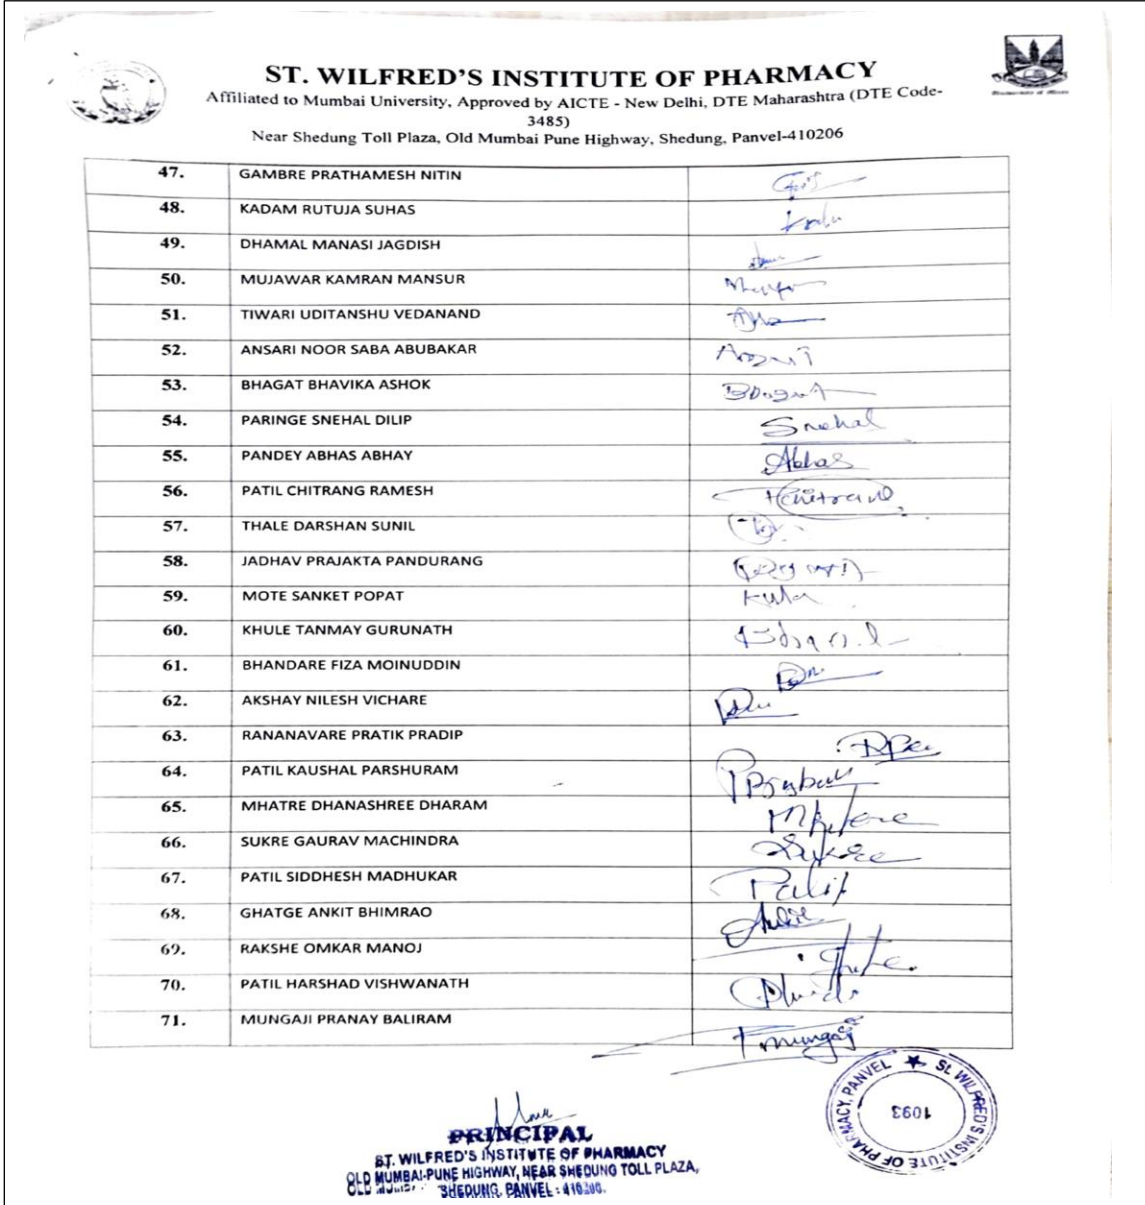 ST. WILFRED'S INSTITUTE OF PHARMACY
Affiliated to Mumbai University, Approved by AICTE - New Delhi, DTE Maharashtra (DTE Code-
3485)
Near Shedung Toll Plaza, Old Mumbai Pune Highway, Shedung, Panvel-410206
47. GAMBRE PRATHAMESH NITIN
48. KADAM RUTUJA SUHAS
49. DHAMAL MANASI JAGDISH
50. MUJAWAR KAMRAN MANSUR
51. TIWARI UDITANSHU VEDANAND
52. ANSARI NOOR SABA ABUBAKAR
53. BHAGAT BHAVIKA ASHOK
54. PARINGE SNEHAL DILIP Snehal
55. PANDEY ABHAS ABHAY Abhas
56. PATIL CHITRANG RAMESH
57. THALE DARSHAN SUNIL
58. JADHAV PRAJAKTA PANDURANG
59. MOTE SANKET POPAT
60. KHULE TANMAY GURUNATH
61. BHANDARE FIZA MOINUDDIN
62. AKSHAY NILESH VICHARE
63. RANANAVARE PRATIK PRADIP
64. PATIL KAUSHAL PARSHURAM
65. MHATRE DHANASHREE DHARAM
66. SUKRE GAURAV MACHINDRA
67. PATIL SIDDHESH MADHUKAR
68. GHATGE ANKIT BHIMRAO
69. RAKSHE OMKAR MANOJ
70. PATIL HARSHAD VISHWANATH
71. MUNGAJI PRANAY BALIRAM
PRINCIPAL
ST. WILFRED'S INSTITUTE OF PHARMACY
OLD MUMBAI-PUNE HIGHWAY, NEAR SHEDUNG TOLL PLAZA,
SHEDUNG, PANVEL : 410206.
St. WILFRED'S INSTITUTE OF PHARMACY, PANVEL
1093